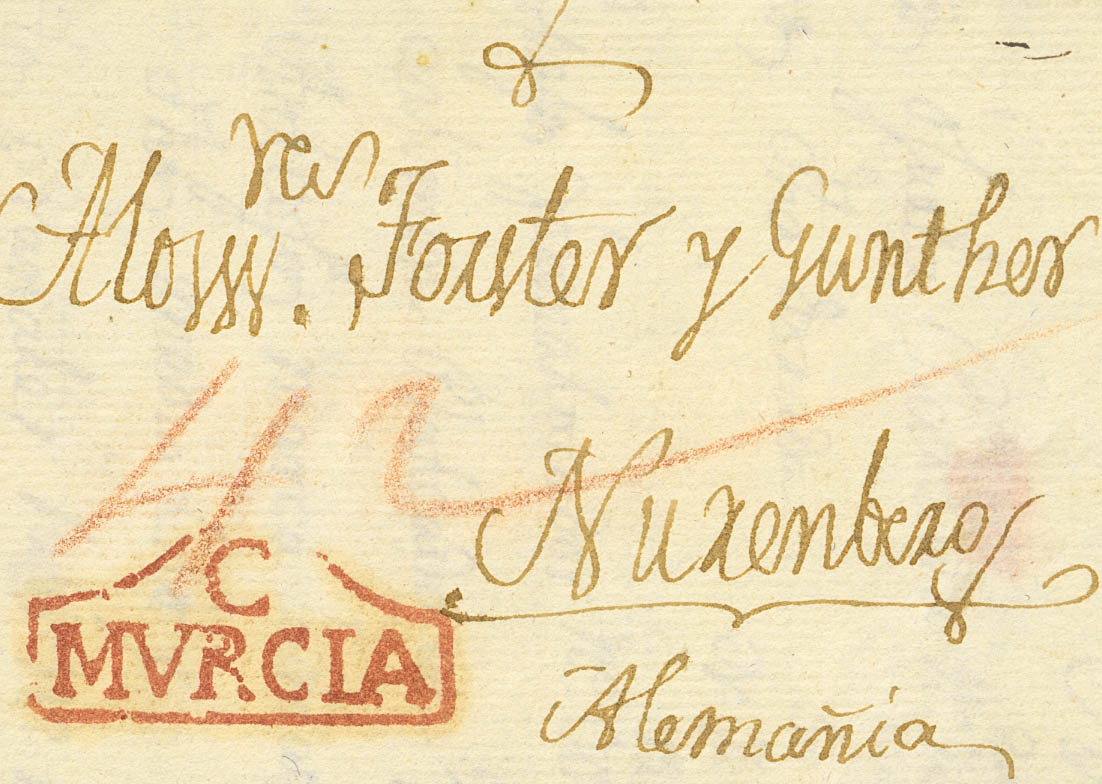 Alos SS.res Forster y Gunther
42
Nurenberg
C
MVRCIA
Alemañia